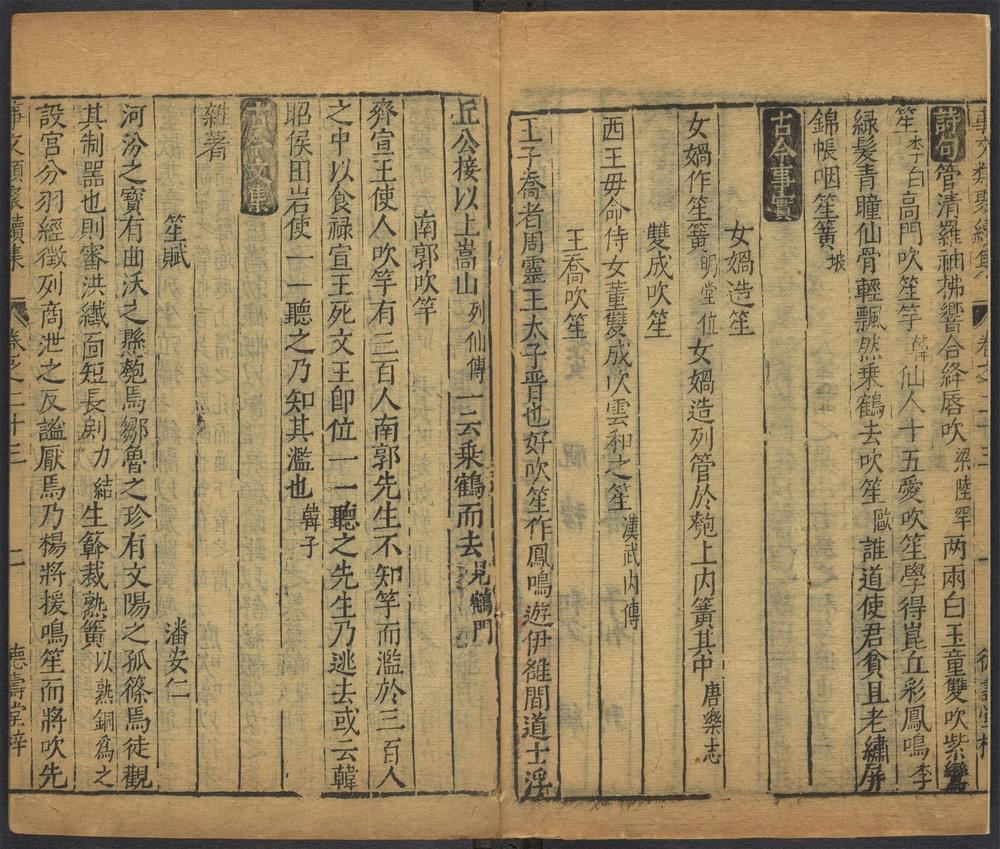 事文類聚續集 卷之二十三 一 德壽堂梓
詩句 管清羅袖拂響合絳唇吹梁陸罕两兩白玉童雙吹紫鸞
笙李白高門吹笙竽韓仙人十五愛吹笙學得崑丘彩鳳鳴李
綠髮青瞳仙骨輕飄然乘鶴去吹笙歐誰道使君貧且老繡屏
錦帳咽笙簧坡
古今事實
女媧造笙
女媧作笙簧明堂位女媧造列管於匏上内簧其中唐樂志
雙成吹笙
西王母命侍女董雙成吹雲和之笙漢武内傳
王喬吹笙
王子喬者周靈王太子晉也好吹笙作鳳鳴遊伊雒間道士浮
丘公接以上嵩山列仙傳一云乘鶴而去見鶴門
南郭吹竽
齊宣王使人吹竽有三百人南郭先生不知竽而濫於三百人
之中以食禄宣王死文王即位一一聽之先生乃逃去或云韓
昭侯田岩使一一聽之乃知其濫也韓子
古今文集
雜著
笙賦 潘安仁
河汾之寶有曲沃之懸匏焉鄒魯之珍有文陽之孤篠焉徒觀
其制器也則審洪纖面短長剧力結生簳裁熟簧以熟銅爲之
設宫分羽經徵列商泄之反謐厭焉乃楊將援鳴笙而將吹先
事文類聚續集 卷之二十三 二 德壽堂梓